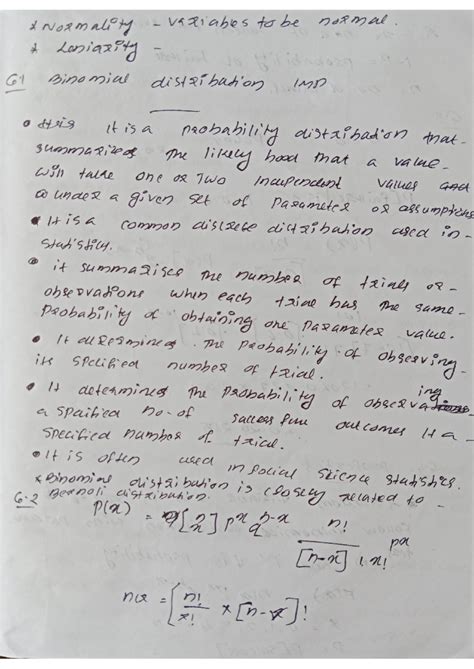 * Normality - variables to be normal.
* Loniarity -
6.1 Binomial distribution IMP
• It is a probability distribution that
summarizes The likely hood that a value
will take one or Two Independent values and
under a given set of Parameter or assumptions
• It is a common discrete distribution used in
statistics.
• it summarises The number of trials or
observations when each trial has The same
Probability of obtaining one Parameter value.
• It determines The Probability of observing
its specified number of trial.
• It determined The Probability of observing
a spaified no. of success full outcomes
specified number of trial.
• It is often used in social science statistics.
* Binomial distribution is closely related to
6.2 Bernoli distribution.
P(x) = [n/x] p^x q^n-x n!/[n-x]! x! p^x
ncx = [n!/x! × [n-x]!